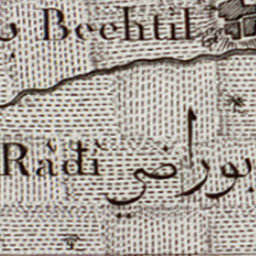 Bechtil
Ràdì بوراضي